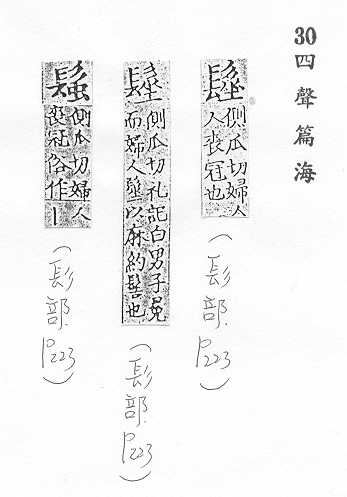 30 四聲篇海
側瓜切婦
人喪冠也
(髟部 P223)
側瓜切礼記曰男子冕
而婦人髽以麻約髻也
(髟部 P223)
側瓜切婦人
喪冠俗作丨
(髟部 P223)